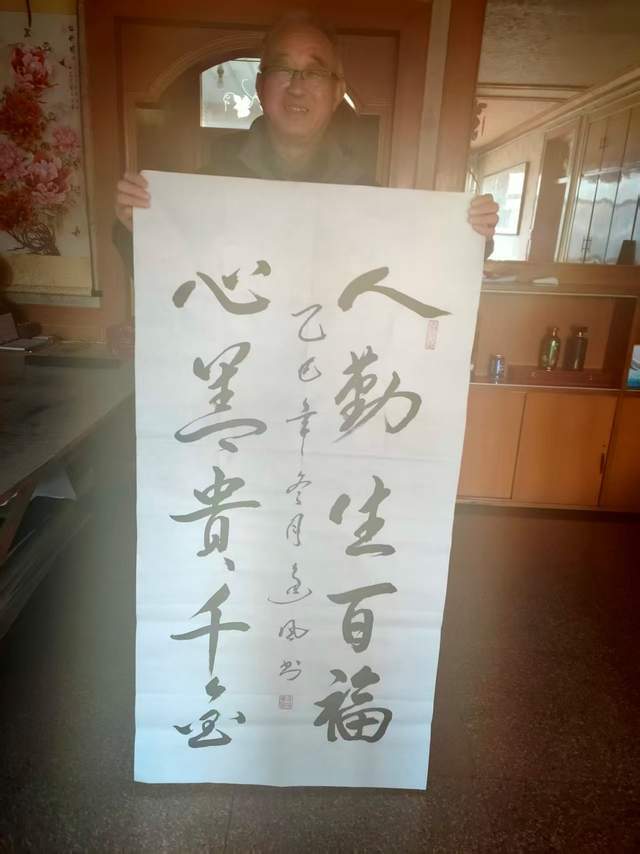 人勤生百福
心善貴千金
乙巳年冬月
风书